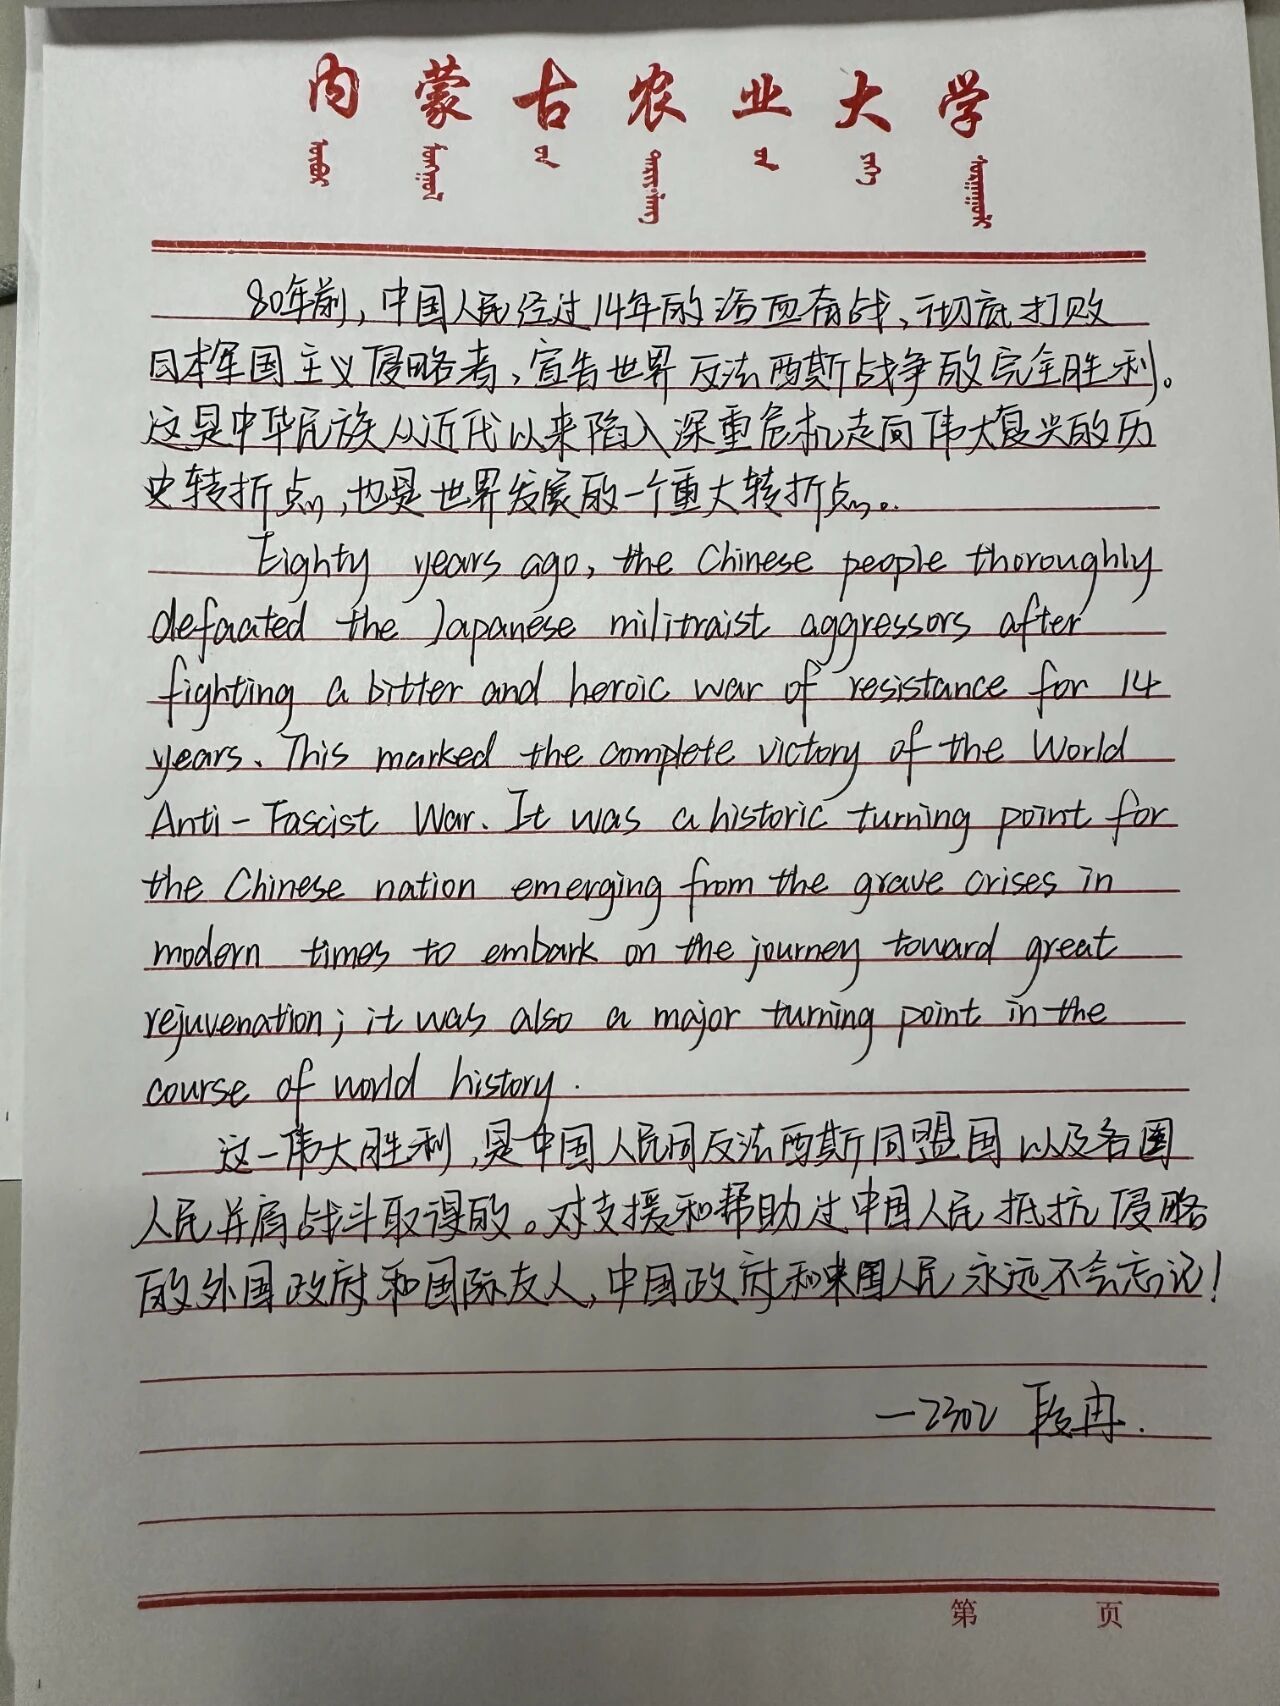 内蒙古农业大学
80年前，中国人民经过14年的浴血奋战、彻底打败
日本军国主义侵略者，宣告世界反法西斯战争的完全胜利。
这是中华民族从近代以来陷入深重危机走向伟大复兴的历
史转折点，也是世界发展的一个重大转折点。
Eighty years ago, the Chinese people thoroughly
defaated the Japanese militraist aggressors after
fighting a bitter and heroic war of resistance for 14
years. This marked the complete victory of the World
Anti-Fascist War. It was a historic turning point for
the Chinese nation emerging from the grave crises in
modern times to embark on the journey toward great
rejuvenation; it was also a major turning point in the
course of world history.
这一伟大胜利，是中国人民同反法西斯同盟国以及各国
人民并肩战斗取得的。对支援和帮助过中国人民抵抗侵略
的外国政府和国际友人，中国政府和中国人民永远不会忘记！
—2302 段冉.
第 页